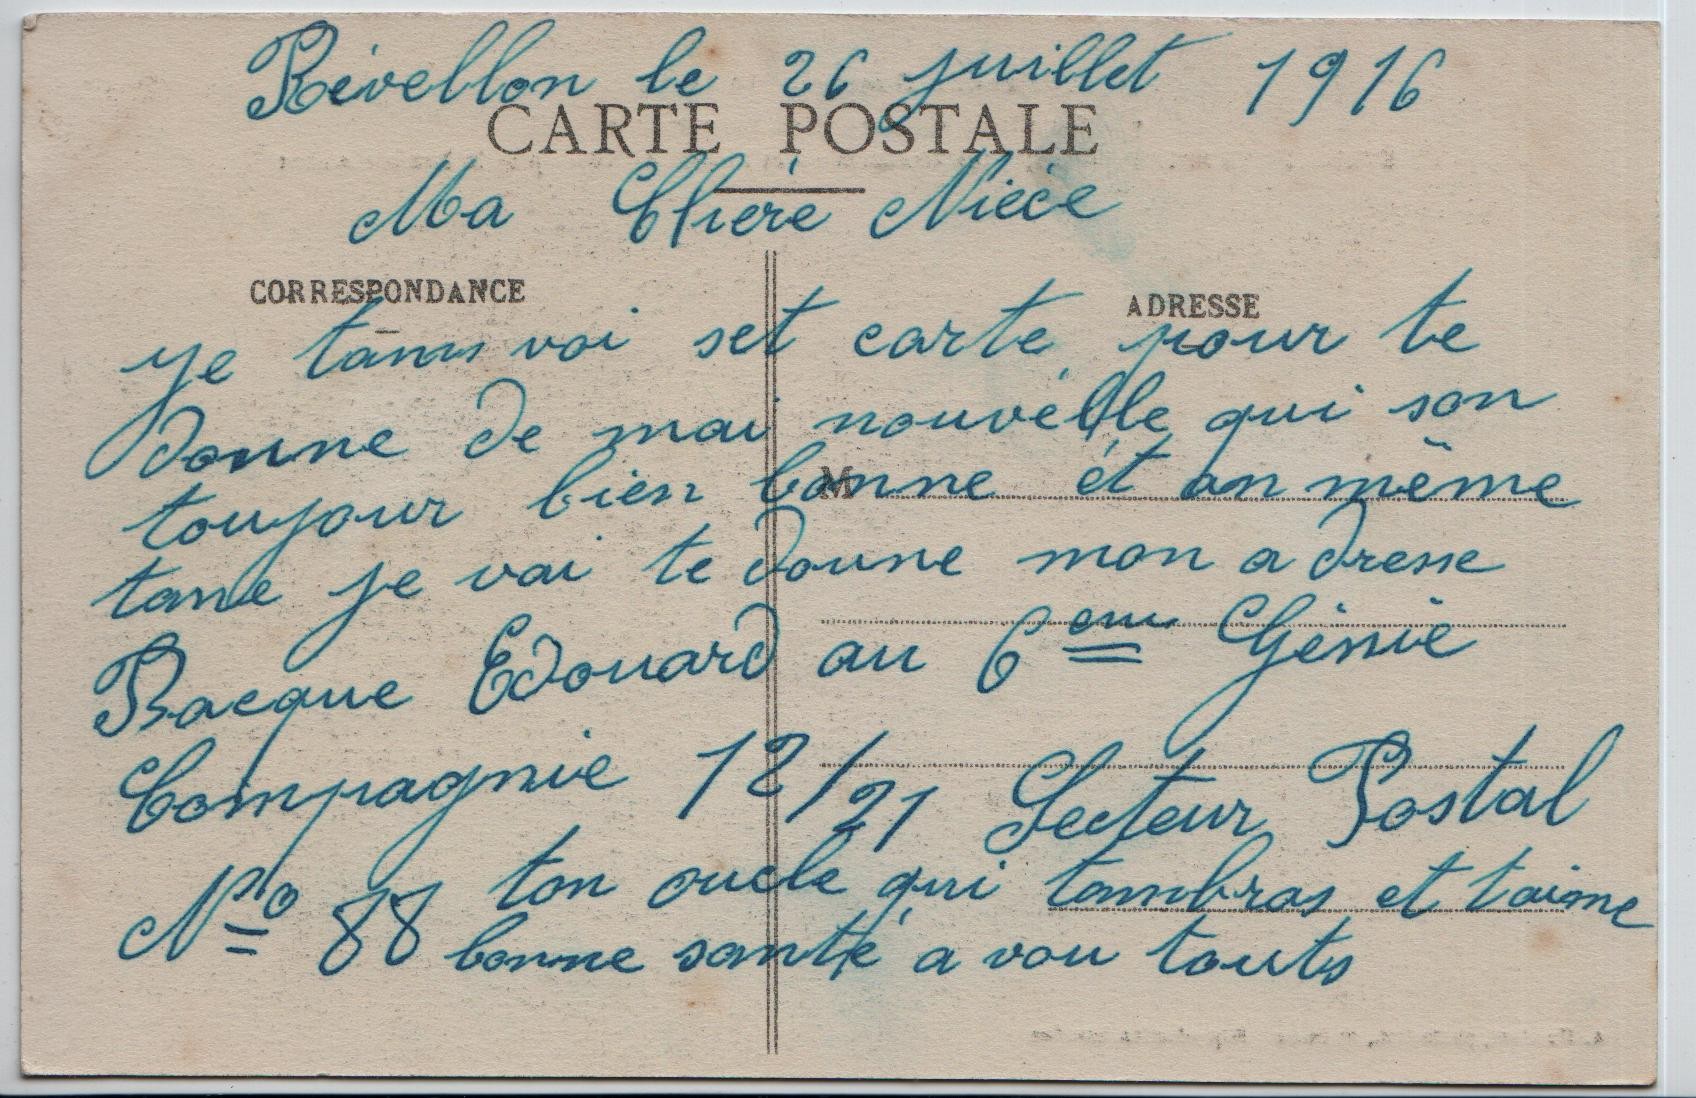 Révellon le 26 juillet 1916
CARTE POSTALE
Ma Chère Nièce
CORRESPONDANCE
ADRESSE
je tanvoi set carte pour te
donne de mai nouvélle qui son
toujour bien bonne ét an même
M
tane je vai te donne mon adresse
Bacque Edouard au 6eme Génie
Compagnie 12/21 Secteur Postal
No 88 ton oncle qui tambras et taime
bonne santé a vou touts